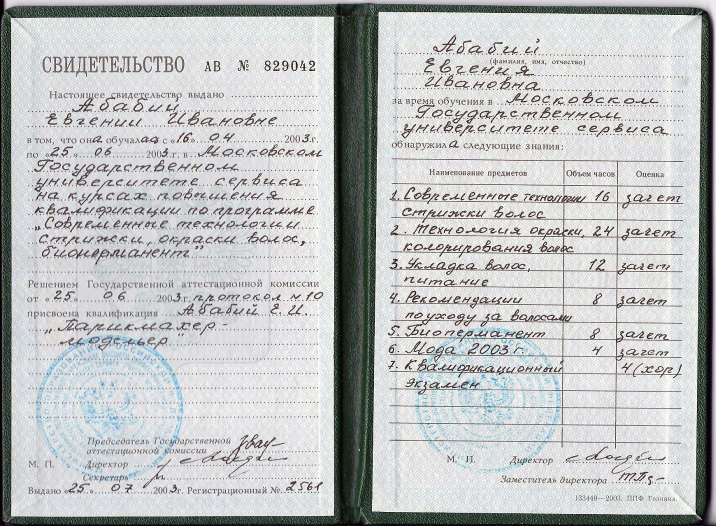 СВИДЕТЕЛЬСТВО АВ № 829042
Настоящее свидетельство выдано
Абабий
Евгении Ивановне
в том, что она обучалась с «16» 04 2003 г.
по «25» 06 2003 г. в Московском
Государственном
университете сервиса
на курсах повышения
квалификации по программе
„Современные технологии
стрижки, окраски волос,
биоперманент"
Решением Государственной аттестационной комиссии
от «25» 06 2003 г. протокол н 10
присвоена квалификация Абабий Е.И.
„Парикмахер-
модельер"
Председатель Государственной
аттестационной комиссии
М. П. Директор
Секретарь
Выдано «25» 07 2003 г. Регистрационный № 2561
Абабий
(фамилия, имя, отчество)
Евгения
Ивановна
за время обучения в Московском
Государственном
университете сервиса
обнаружила следующие знания:
Наименование предметов Объем часов Оценка
1. Современные технологии 16 зачет
стрижки волос
2. Технология окраски, 24 зачет
колорирования волос
3. Укладка волос, 12 зачет
питание
4. Рекомендации 8 зачет
по уходу за волосами
5. Биоперманент 8 зачет
6. Мода 2003 г. 4 зачет
7. Квалификационный 4 (хор)
экзамен
М. П. Директор
Заместитель директора
133440—2003. ППФ Гознака.